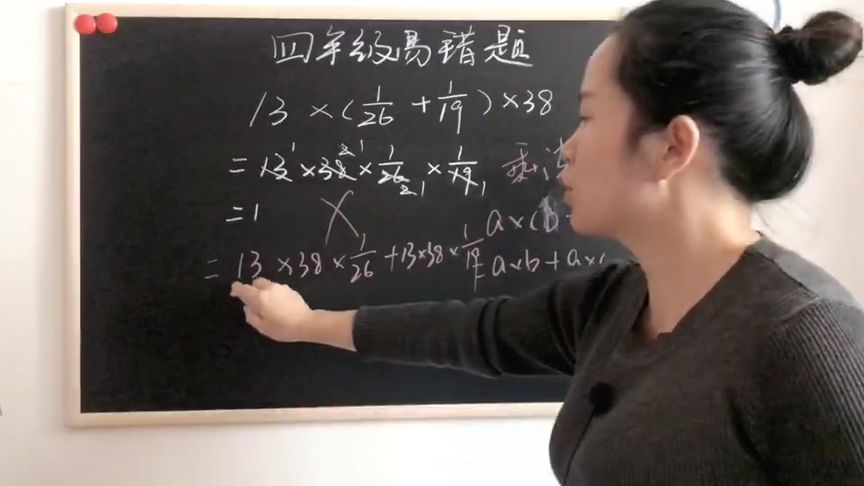 四年级易错题
13 × (1/26 + 1/19) × 38
= 13 × 38 × 1/26 × 1/19 乘法
= 1 ×
a × (b
= 13 × 38 × 1/26 + 13 × 38 × 1/19
= a × b + a ×